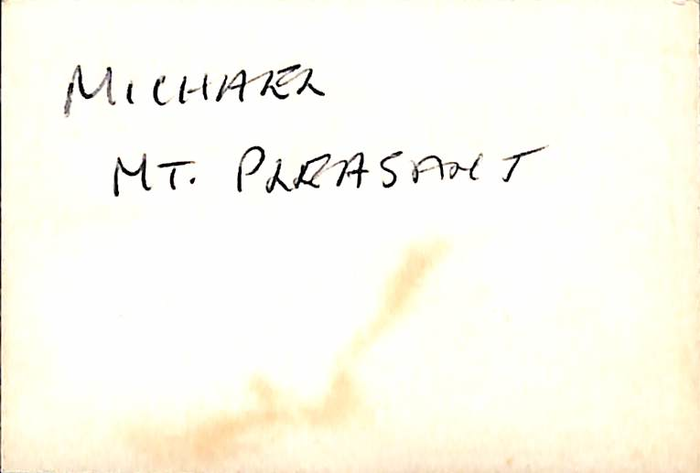 MICHAEL
MT. PLEASANT